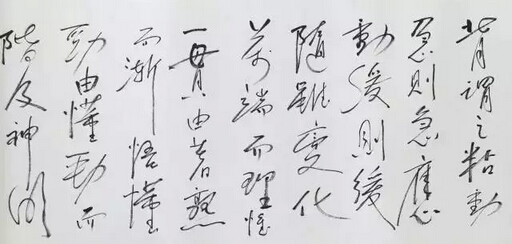 背謂之粘動
急則急應
動緩則緩
隨雖變化
萬端而理惟
一貫由着熟
而漸悟懂
勁由懂勁而
階及神明